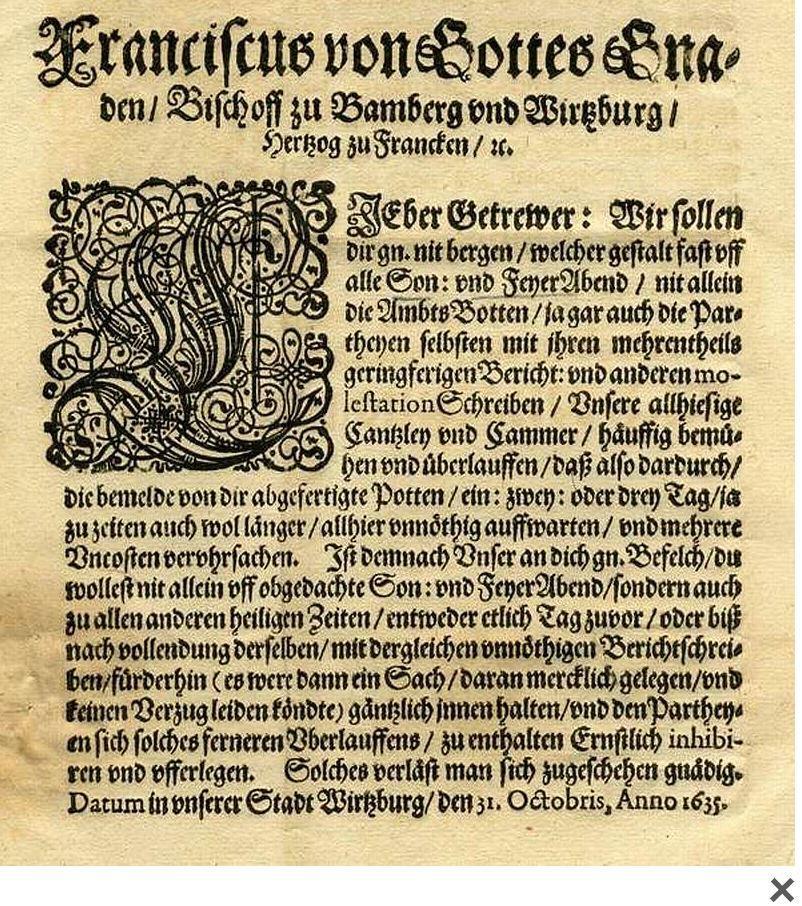 Franciscus von Gottes Gna-
den/ Bischoff zu Bamberg vnd Wirtzburg/
Hertzog zu Francken/ ꝛc.
LJEber Getrewer: Wir sollen
dir gn. nit bergen/ welcher gestalt fast vff
alle Son: vnd FeyerAbend/ nit allein
die AmbtsBotten/ ja gar auch die Par-
theyen selbsten mit ihren mehrentheils
geringferigen Bericht: vnd anderen mo-
lestation Schreiben/ Vnsere allhiesige
Cantzley vnd Cammer/ häuffig bemü-
hen vnd überlauffen/ daß also dardurch/
die bemelde von dir abgefertigte Potten/ ein: zwey: oder drey Tag/ ja
zu zeiten auch wol länger/ allhier vnnöthig auffwarten/ vnd mehrere
Vncosten vervhrsachen. Ist demnach Vnser an dich gn. Befelch/ du
wollest nit allein vff obgedachte Son: vnd FeyerAbend/ sondern auch
zu allen anderen heiligen Zeiten/ entweder etlich Tag zuvor/ oder biß
nach vollendung derselben/ mit dergleichen vnnöthigen Berichtschrei-
ben/ fürderhin (es were dann ein Sach/ daran mercklich gelegen/ vnd
keinen Verzug leiden köndte) gäntzlich jnnen halten/ vnd den Parthey-
en sich solches ferneren Vberlauffens/ zu enthalten Ernstlich inhibi-
ren vnd vfferlegen. Solches verläst man sich zugeschehen gnädig.
Datum in vnserer Stadt Wirtzburg/ den 31. Octobris, Anno 1635.